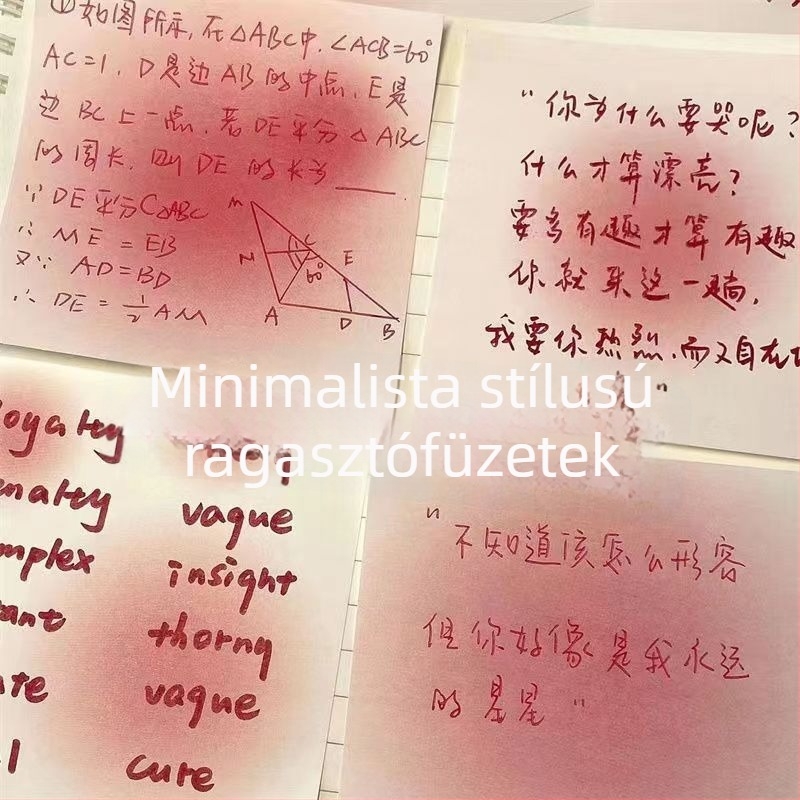 ①如图所示,在△ABC中,∠ACB=60°
AC=1,D是边AB的中点,E是
边BC上一点,若DE平分△ABC
的周长,则DE的长为____
∵ DE平分C△ABC
∴ ME = EB
又∵ AD=BD
∴ DE = ½AM
M
N
C
E
60°
A
D
B
"你为什么要哭呢?
什么才算漂亮?
要多有趣才算有趣
你就来这一趟,
我要你热烈,而又自在
"
Minimalista stílusú
ragasztófüzetek
oyalty
nalty
mplex
ant
te
l
vague
insight
thorny
vague
cure
"不知道该怎么形容
但你好像是我永远
的星星"